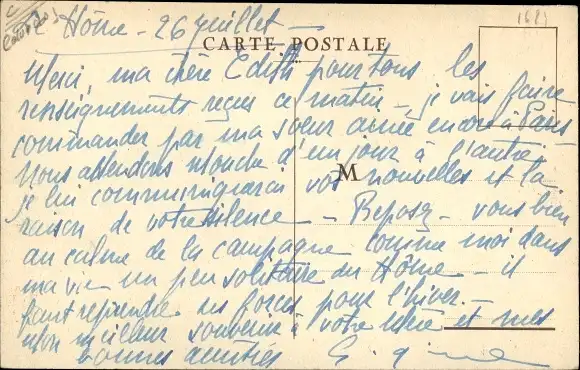 Calvados
Le Hôme - 26 juillet -
1689
CARTE POSTALE
Merci, ma chère Edith pour tous les
renseignements reçus ce matin - je vais faire
commander par ma soeur aînée encore à Paris -
Nous attendons d'un jour à l'autre
je lui communiquerai vos nouvelles et la
M
raison de votre silence - Reposez-vous bien
au calme de la campagne comme moi dans
ma vie un peu solitaire du Hôme - il
faut reprendre des forces pour l'hiver -
Mon meilleur souvenir à votre Mère et mes
bonnes amitiés